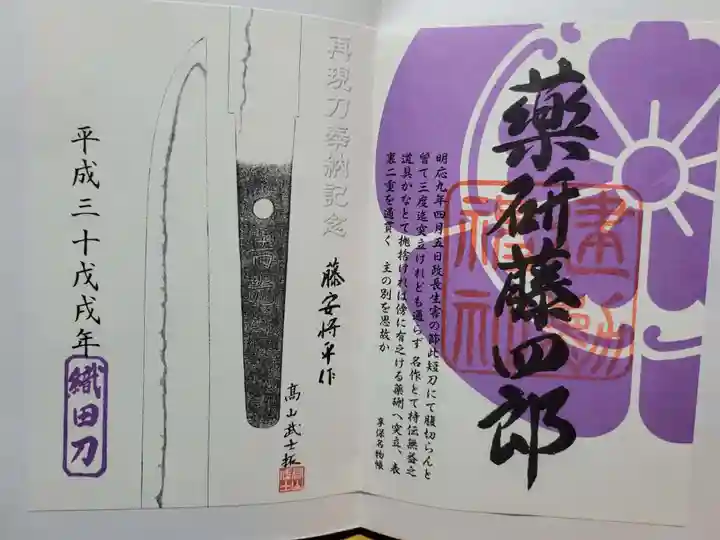 薬研藤四郎
明応九年四月五日政長生害の節此短刀にて腹切らんと
曾て三度迄突立けれども通らず 名作とて持伝無益之
道具かなとて抛捨ければ傍に有之ける薬研へ突立、表
裏二重を通貫く 主の別を思故か
享保名物帳
再現刀奉納記念
藤安将平作
髙山武士拓
平成三十戊戌年
織田刀
建勲